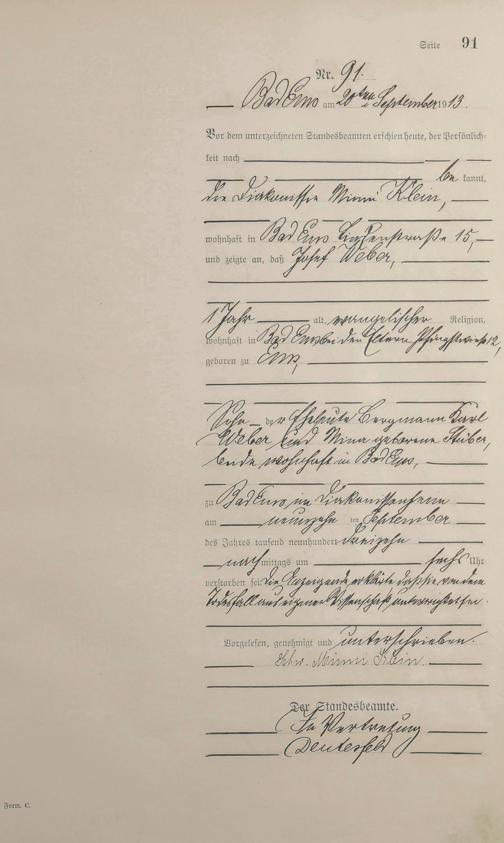 Seite 91
Nr. 91.
Bad Ems am 20ten September 1913.
Vor dem unterzeichneten Standesbeamten erschien heute, der Persönlich-
keit nach
be kannt,
die Diakonissin Minni Klein,
wohnhaft in Bad Ems 15,
und zeigte an, daß Josef Weber,
1 Jahr alt, evangelischer Religion,
wohnhaft in Bad Ems bei den Eltern 12,
geboren zu Ems,
Sohn der Eheleute Bergmann Karl
Weber und Mina geborene Stuber,
beide wohnhaft in Bad Ems,
zu Bad Ems im
am neunzehn ten September
des Jahres tausend neunhundert dreizehn
nach mittags um sechs Uhr
verstorben sei. Die Anzeigende erklärte, daß sie von dem
Todesfall aus eigener Wissenschaft unterrichtet sei.
Vorgelesen, genehmigt und unterschrieben.
Schw. Minni Klein.
Der Standesbeamte.
In Vertretung
Form. C.